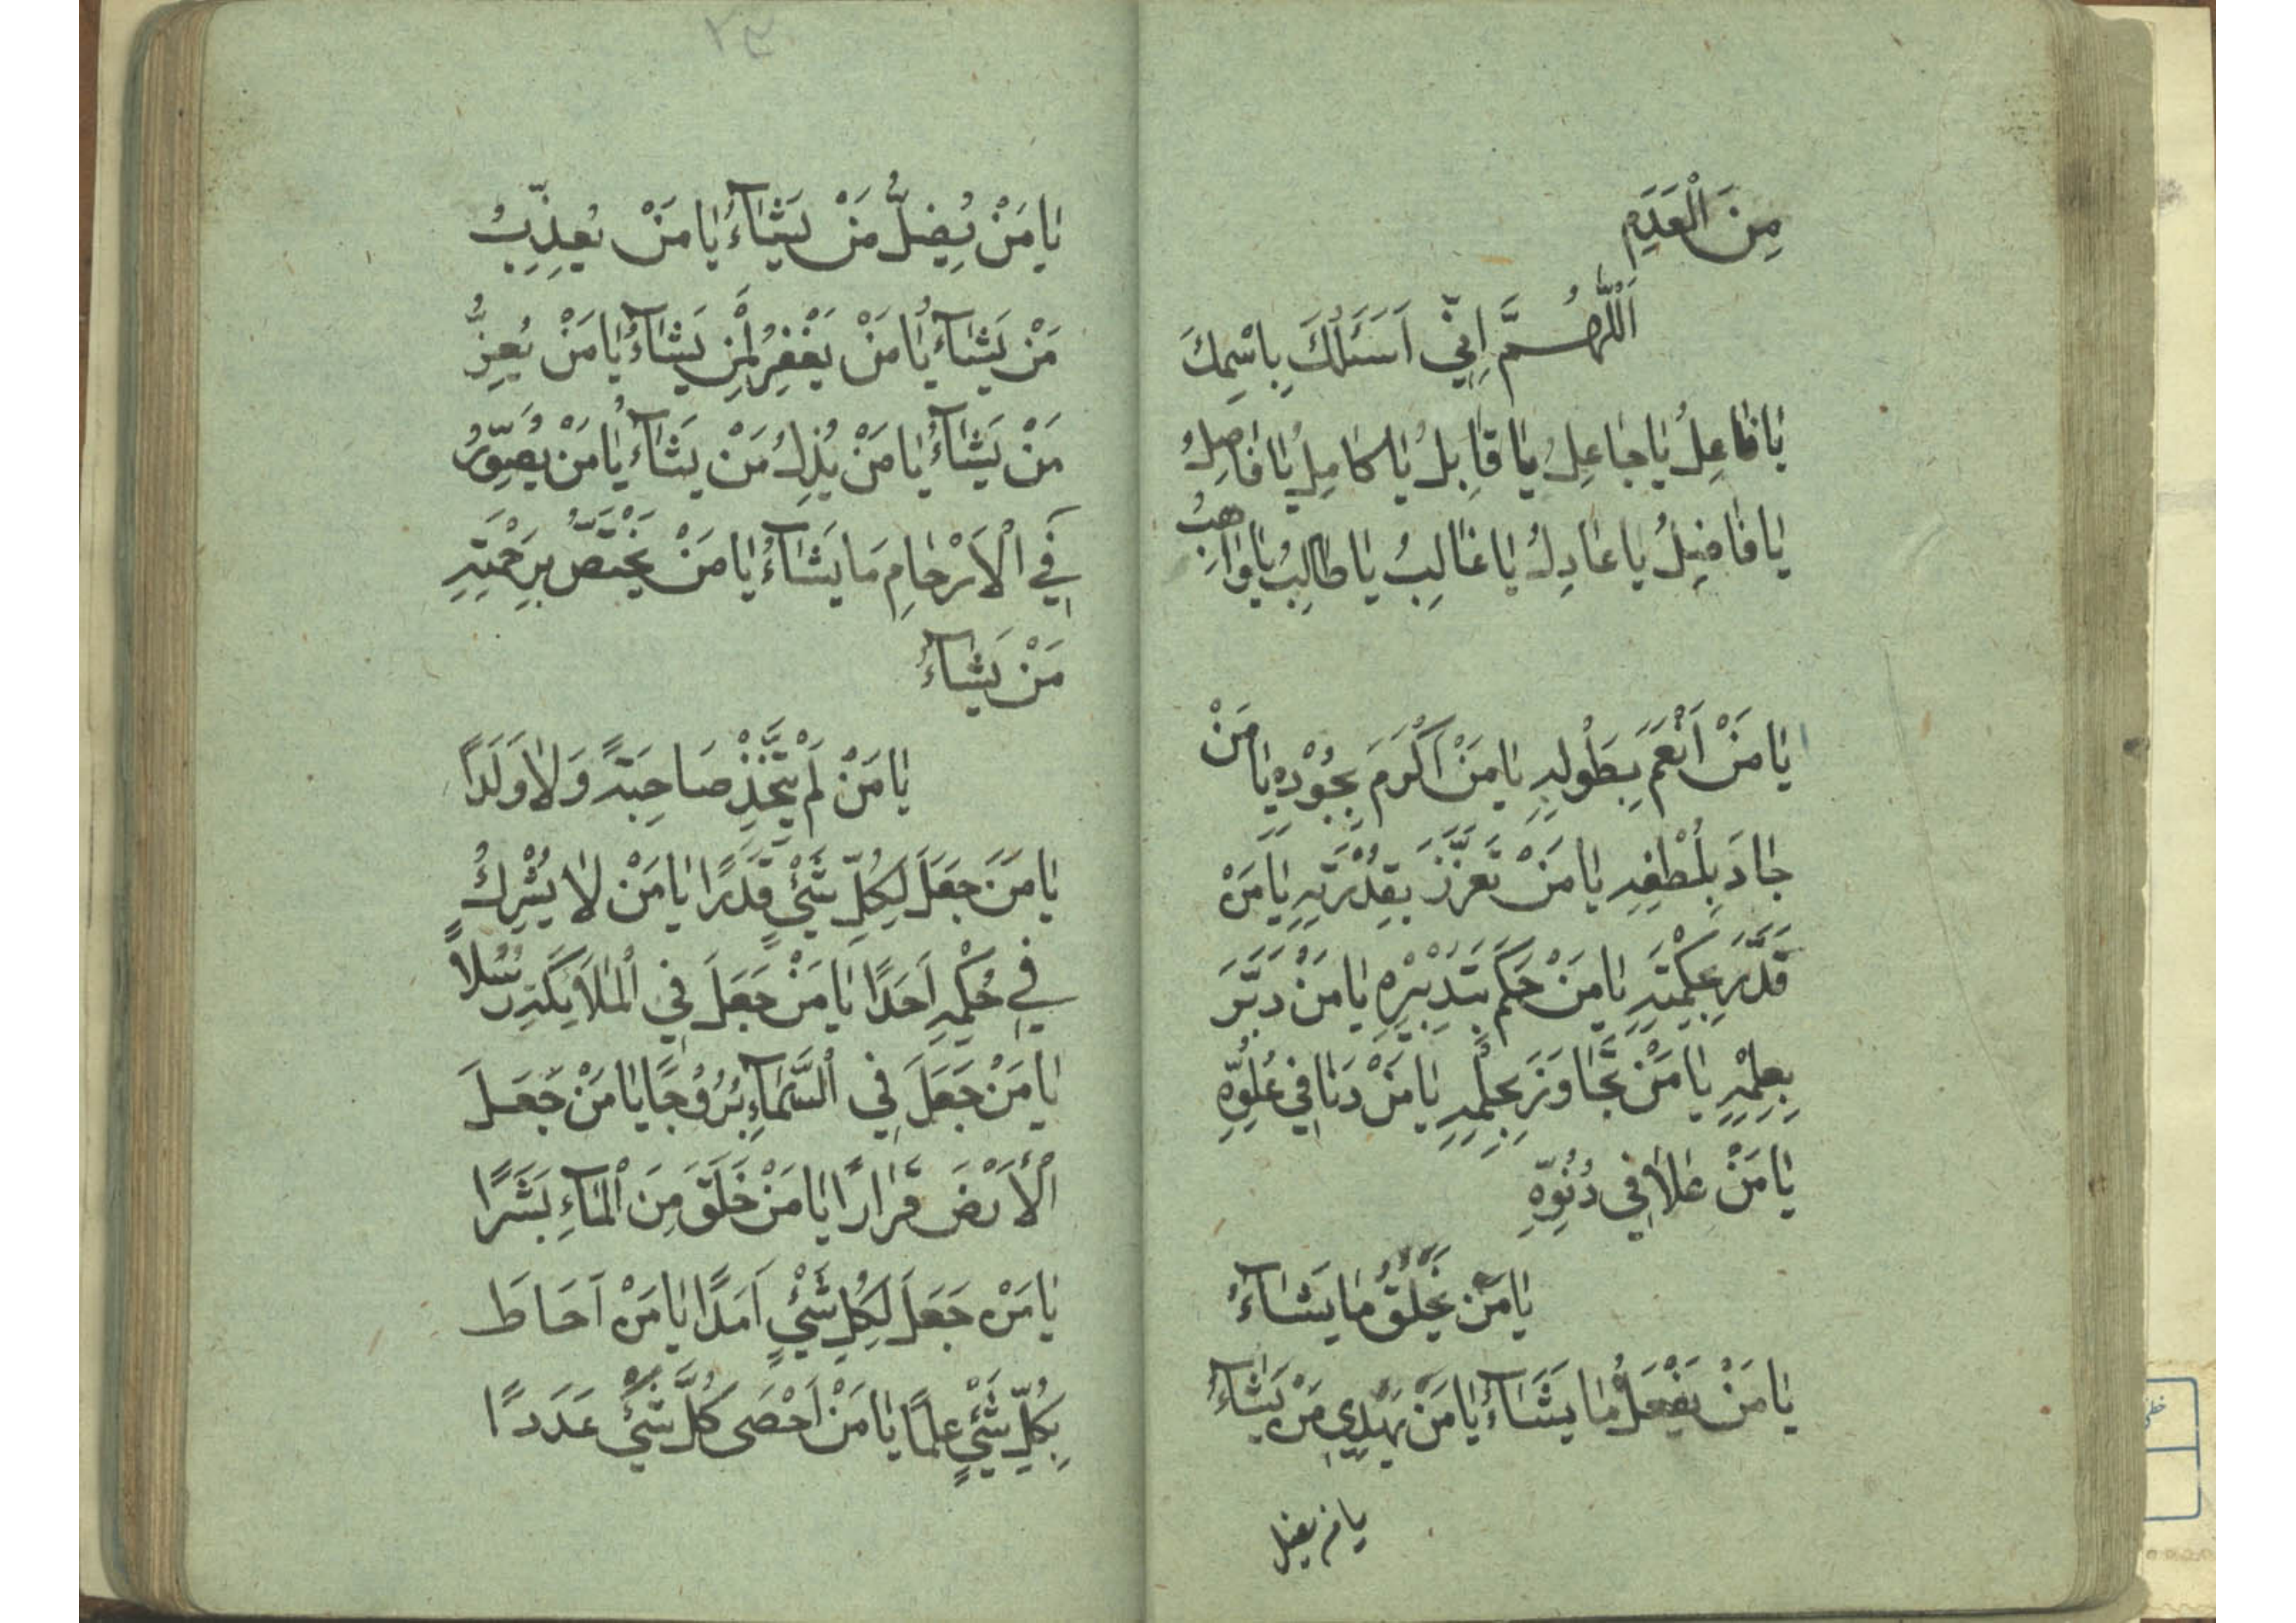 مِنَ الْعَدَمِ
اَللّٰهُمَّ اِنّي اَسْئَلُكَ بِاسْمِكَ
يٰا فٰاعِلُ يٰا جٰاعِلُ يٰا قٰابِلُ يٰا كٰامِلُ يٰا فٰاصِلُ
يٰا فٰاضِلُ يٰا عٰادِلُ يٰا غٰالِبُ يٰا طٰالِبُ يٰا وٰاهِبُ
يٰا مَنْ اَنْعَمَ بِطَوْلِهِ يٰا مَنْ اَكْرَمَ بِجُوْدِهِ يٰا مَنْ
جٰادَ بِلُطْفِهِ يٰا مَنْ تَعَزَّزَ بِقُدْرَتِهِ يٰا مَنْ
قَدَّرَ بِحِكْمَتِهِ يٰا مَنْ حَكَمَ بِتَدْبِيْرِهِ يٰا مَنْ دَبَّرَ
بِعِلْمِهِ يٰا مَنْ تَجٰاوَزَ بِحِلْمِهِ يٰا مَنْ دَنٰا في عُلُوِّهِ
يٰا مَنْ عَلٰا في دُنُوِّهِ
يٰا مَنْ يَخْلُقُ مٰا يَشٰآءُ
يٰا مَنْ يَفْعَلُ مٰا يَشٰآءُ يٰا مَنْ يَهْدِي مَنْ يَشٰآءُ
يا من يضل
٢٣
يٰا مَنْ يُضِلُّ مَنْ يَشٰآءُ يٰا مَنْ يُعَذِّبُ
مَنْ يَشٰآءُ يٰا مَنْ يَغْفِرُ لِمَنْ يَشٰآءُ يٰا مَنْ يُعِزُّ
مَنْ يَشٰآءُ يٰا مَنْ يُذِلُّ مَنْ يَشٰآءُ يٰا مَنْ يُصَوِّرُ
فِي الْاَرْحٰامِ مٰا يَشٰآءُ يٰا مَنْ يَخْتَصُّ بِرَحْمَتِهِ
مَنْ يَشٰآءُ
يٰا مَنْ لَمْ يَتَّخِذْ صَاحِبَةً وَلٰا وَلَدًا
يٰا مَنْ جَعَلَ لِكُلِّ شَيْءٍ قَدَرًا يٰا مَنْ لٰا يُشْرِكُ
فِي حُكْمِهِ اَحَدًا يٰا مَنْ جَعَلَ فِي الْمَلٰائِكَةِ رُسُلًا
يٰا مَنْ جَعَلَ فِي السَّمَآءِ بُرُوْجًا يٰا مَنْ جَعَلَ
الْأَرْضَ قَرٰارًا يٰا مَنْ خَلَقَ مِنَ الْمٰآءِ بَشَرًا
يٰا مَنْ جَعَلَ لِكُلِّ شَيْءٍ اَمَدًا يٰا مَنْ اَحَاطَ
بِكُلِّ شَيْءٍ عِلْمًا يٰا مَنْ اَحْصَى كُلَّ شَيْءٍ عَدَدًا